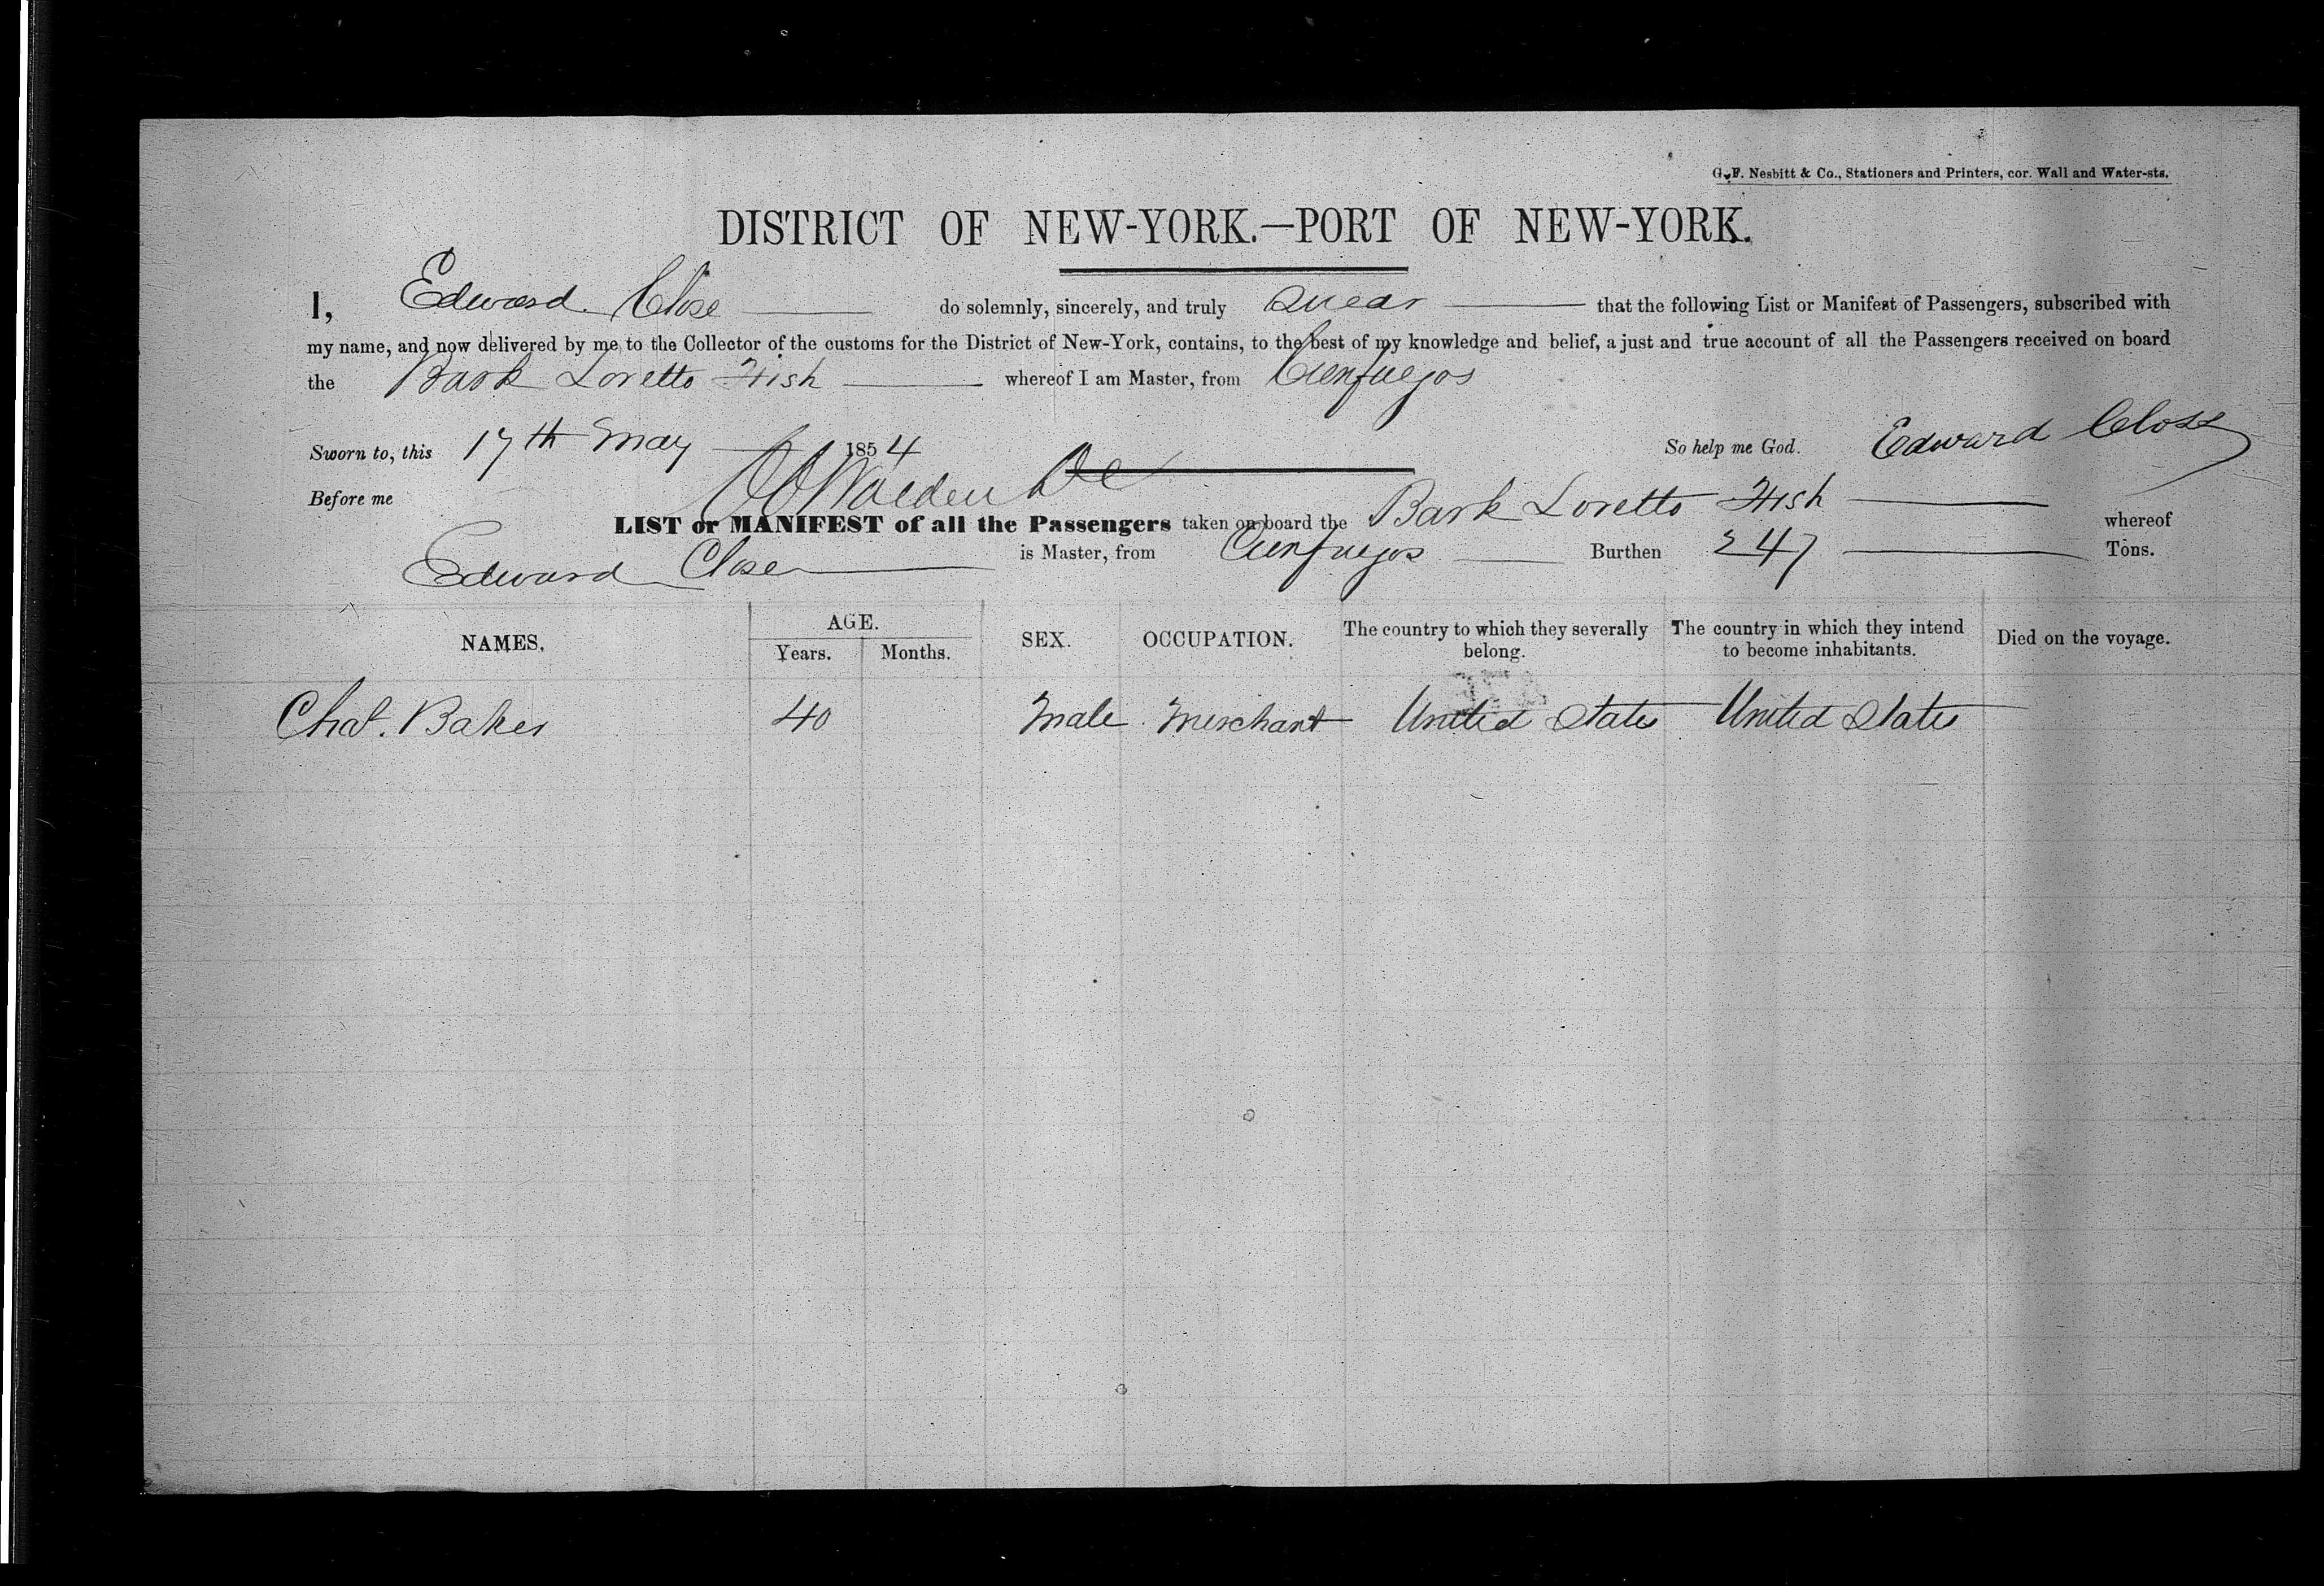 G. F. Nesbitt & Co., Stationers and Printers, cor. Wall and Water-sts.
DISTRICT OF NEW-YORK.—PORT OF NEW-YORK.
I, Edward Close do solemnly, sincerely, and truly Swear that the following List or Manifest of Passengers, subscribed with
my name, and now delivered by me to the Collector of the customs for the District of New-York, contains, to the best of my knowledge and belief, a just and true account of all the Passengers received on board
the Bark Loretto Fish whereof I am Master, from Cienfuegos
Sworn to, this 17th May 1854 So help me God. Edward Close
Before me
LIST or MANIFEST of all the Passengers taken on board the Bark Loretto Fish whereof
Edward Close is Master, from Cienfuegos Burthen 247 Tons.
NAMES. AGE. Years. Months. SEX. OCCUPATION. The country to which they severally belong. The country in which they intend to become inhabitants. Died on the voyage.
Chas. Baker 40 Male Merchant United States United States